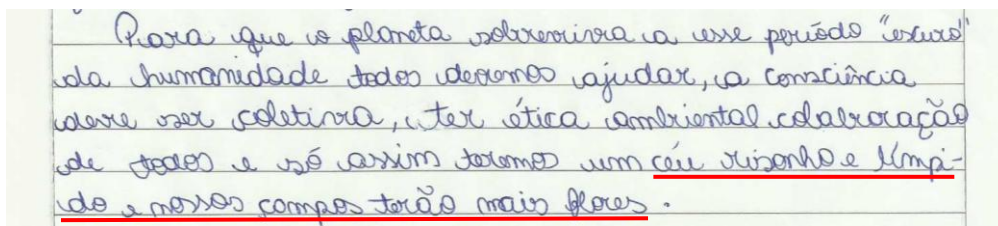 Para que o planeta sobreviva a esse período "escuro"
da humanidade todos devemos ajudar, a consciência
deve ser coletiva, ter ética ambiental colaboração
de todos e só assim teremos um céu risonho e límpi-
do e nossos campos terão mais flores.